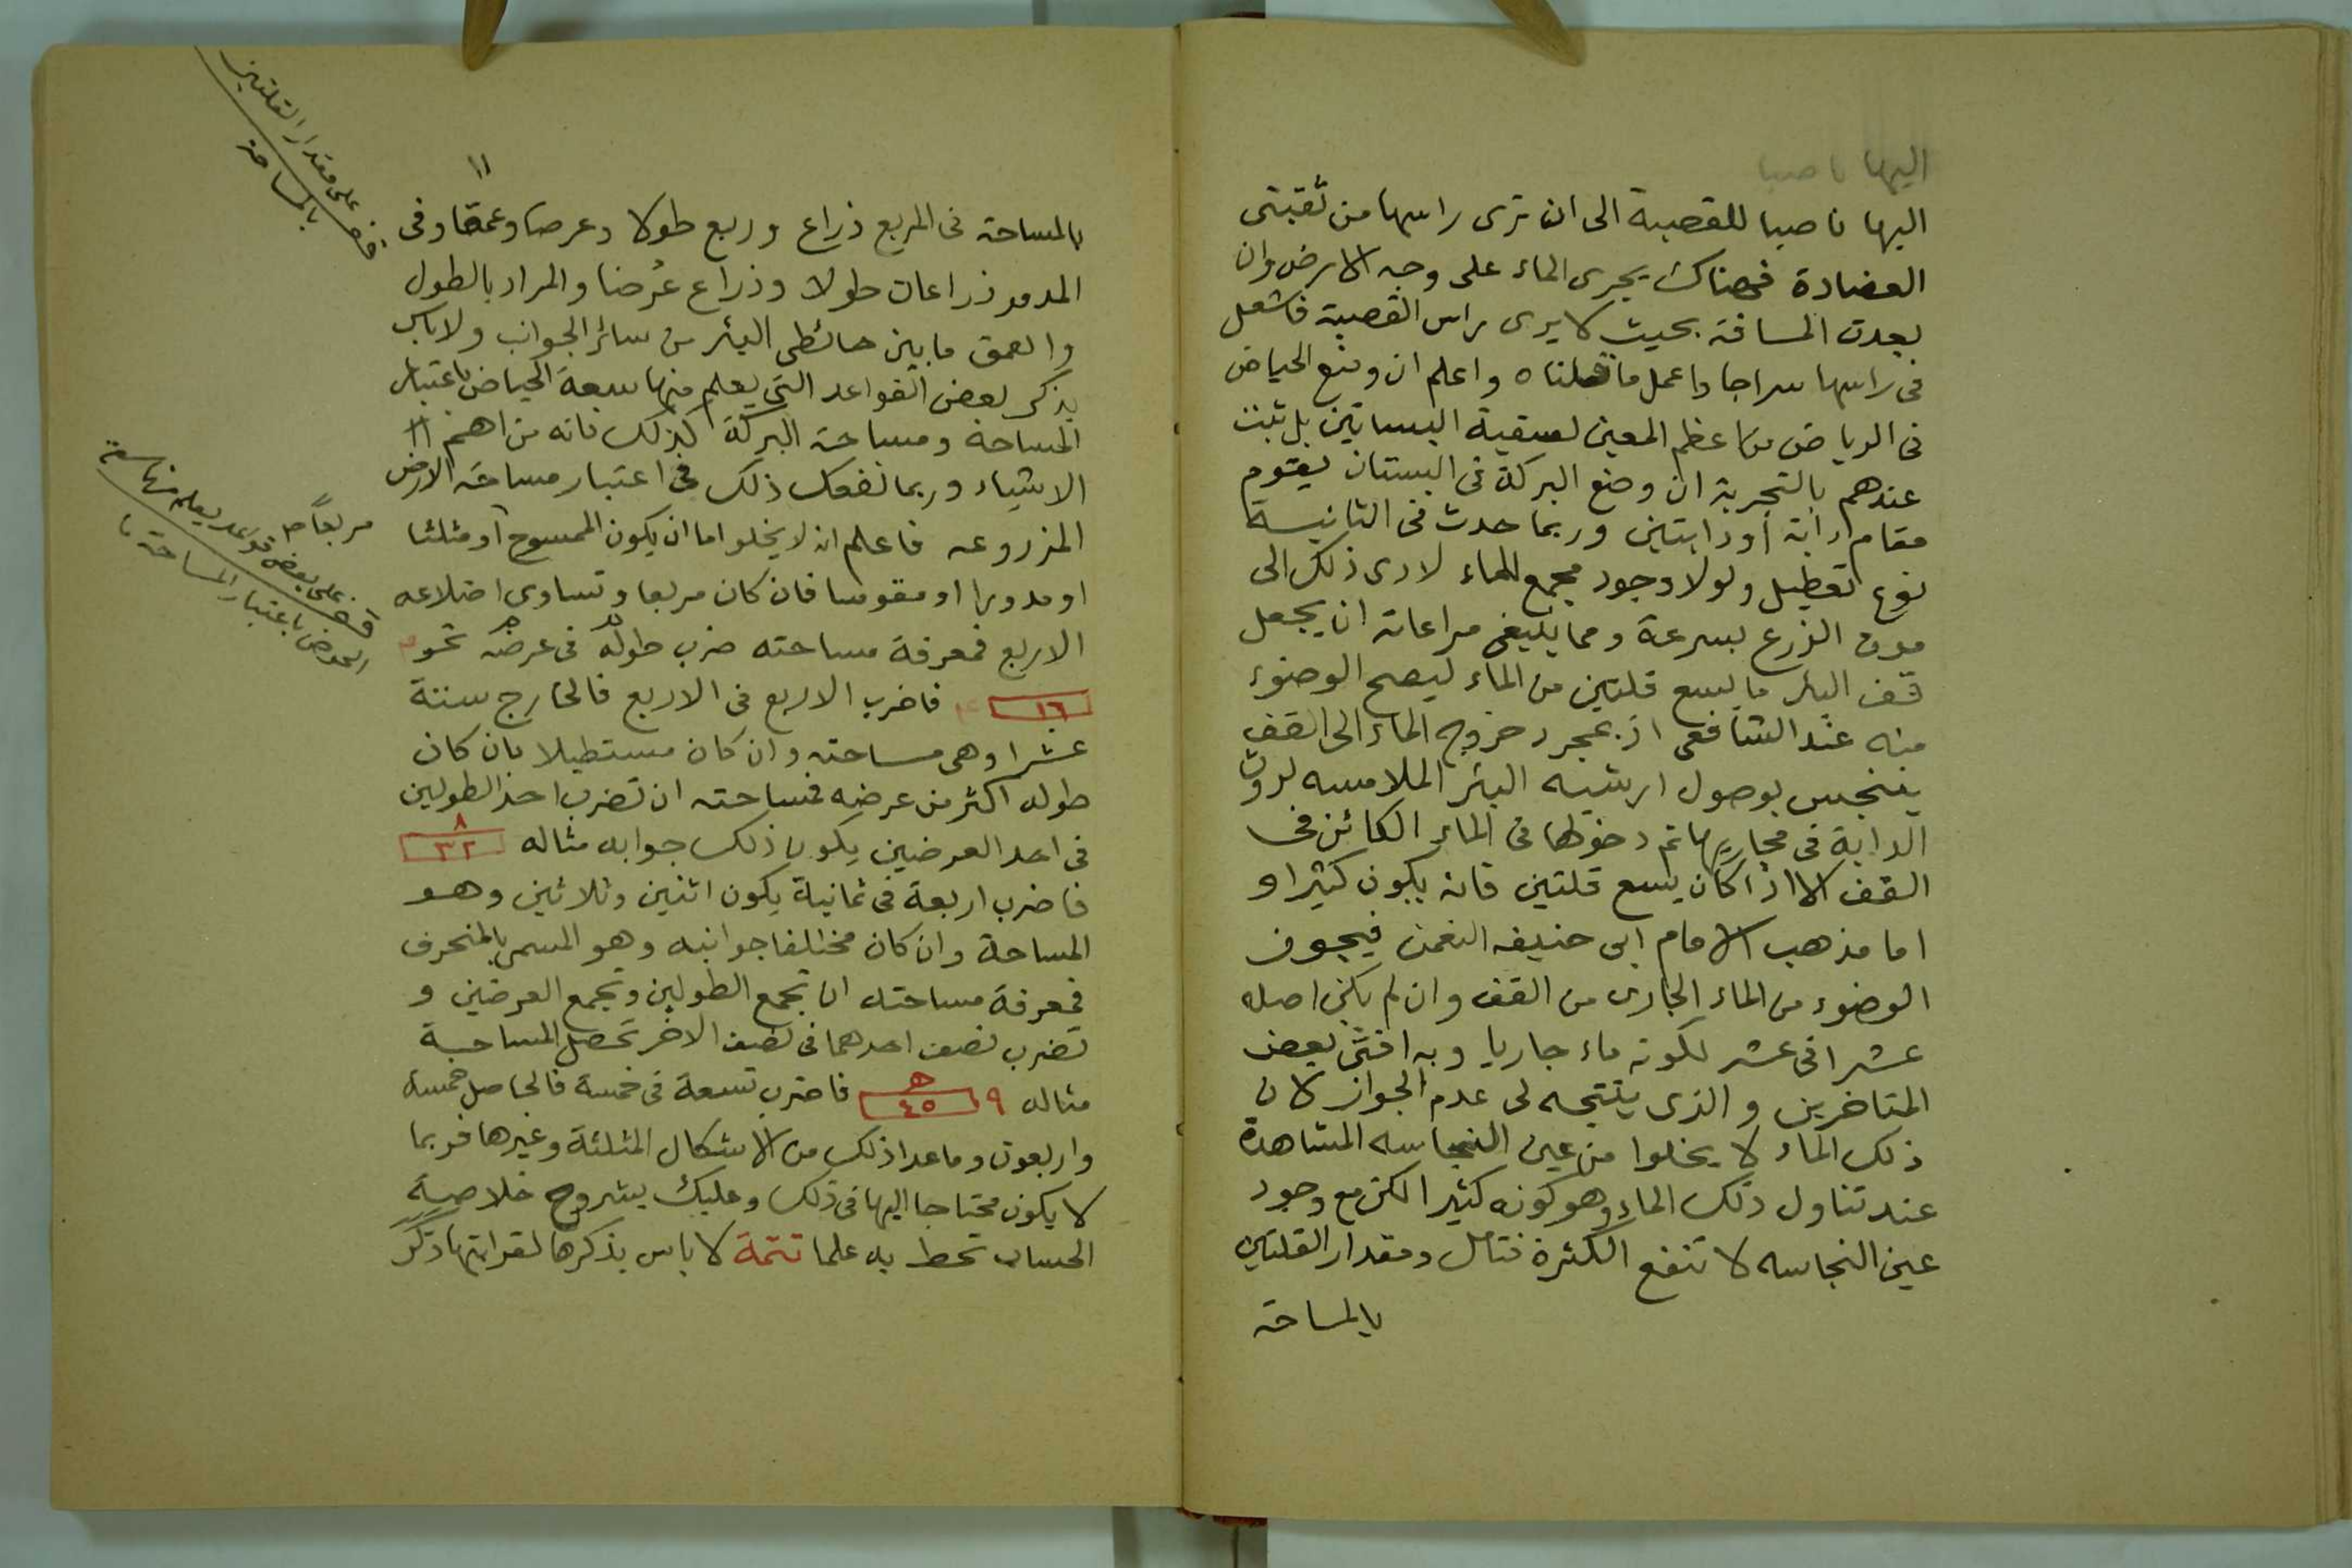 اليها ناصبا
اليها ناصبا للقصبة الى ان ترى راسها من ثقبتى
العضادة فهناك يجرى الماء على وجه الارض وان
بعدت المسافة بحيث لا يرى راس القصبة فاشعل
فى راسها سراجا واعمل ما قلناه واعلم ان وضع الحياض
فى الرياض من اعظم المعين لسقية البساتين بل ثبت
عندهم بالتجربة ان وضع البركة فى البستان يقوم
مقام دابة او دابتين وربما حدث فى الثانية
نوع تعطيل ولولا وجود مجمع للماء لادى ذلك الى
موت الزرع بسرعة ومما ينبغى مراعاته ان يجعل
قف البئر ما يسع قلتين من الماء ليصح الوضوء
منه عند الشافعى اذ بمجرد خروج الماء الى القف
يتنجس بوصول ارشيه البئر الملامسه لروث
الدابة فى مجاريها ثم دخولها فى الماء الكائن فى
القف الا اذا كان يسع قلتين فانه يكون كثيرا و
اما مذهب الامام ابى حنيفه النعمن فيجوز
الوضوء من الماء الجارى من القف وان لم يكن اصله
عشرا فى عشر لكونه ماء جاريا وبه افتى بعض
المتاخرين والذى يتجه لى عدم الجواز لان
ذلك الماء لا يخلوا من عين النجاسه المشاهدة
عند تناول ذلك الماء وهو كونه كثيرا لكن مع وجود
عين النجاسه لا تنفع الكثرة فتامل ومقدار القلتين
بالمساحة
١١
بالمساحة فى المربع ذراع وربع طولا وعرضا وعمقا وفى
المدور ذراعان طولا وذراع عرضا والمراد بالطول
والعمق ما بين حائطى البئر من سائر الجوانب ولا باس
بذكر بعض القواعد التى يعلم منها سعة الحياض باعتبار
المساحة ومساحة البركة كذلك فانه من اهم
الاشياء وربما نفعك ذلك فى اعتبار مساحة الارض
المزروعه فاعلم انه لا يخلو اما ان يكون الممسوح او مثلثا
او مدورا او مقوسا فان كان مربعا وتساوى اضلاعه
الاربع فمعرفة مساحته ضرب طوله فى عرضه نحو
١٦ فاضرب الاربع فى الاربع فالخارج ستة
عشرا وهى مساحته وان كان مستطيلا بان كان
طوله اكثر من عرضه فمساحته ان تضرب احد الطولين
فى احد العرضين يكون ذلك جوابه مثاله ٨ ٣٢
فاضرب اربعة فى ثمانية يكون اثنين وثلاثين وهو
المساحة وان كان مختلفا جوانبه وهو المسمى بالمنحرف
فمعرفة مساحته ان تجمع الطولين وتجمع العرضين و
تضرب نصف احدهما فى نصف الاخر تحصل المساحة
مثاله ٩ ٥ ٤٥ فاضرب تسعة فى خمسة فالحاصل خمسة
واربعون وما عدا ذلك من الاشكال المثلثة وغيرها فربما
لا يكون محتاجا اليها فى ذلك وعليك بشروح خلاصة
الحساب تحط به علما تتمة لا باس بذكرها لغرابتها ذكر
قف على مقدار القلتين
بالمساحة
مربعا
قف على بعض قواعد يعلم منها سعة
الحوض باعتبار المساحة